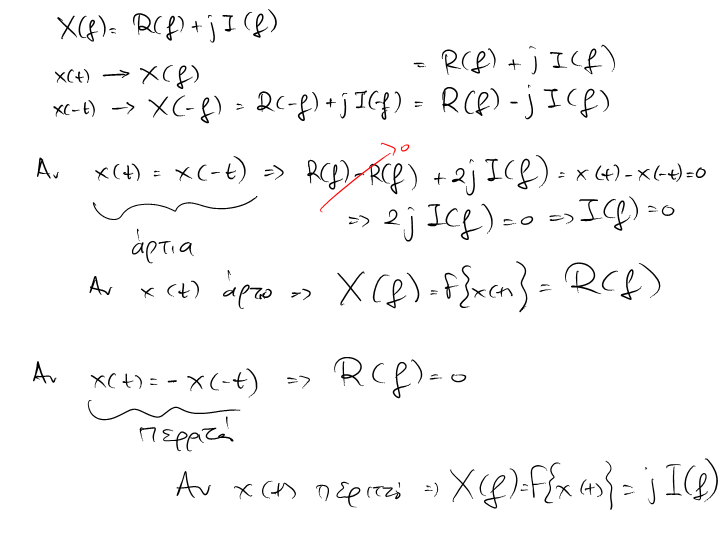 X(f) = R(f) + j I(f)
x(t) → X(f) = R(f) + j I(f)
x(-t) → X(-f) = R(-f) + j I(-f) = R(f) - j I(f)
Αν x(t) = x(-t) => R(f) - R(f) + 2j I(f) = x(t) - x(-t) = 0
0
άρτια
=> 2j I(f) = 0 => I(f) = 0
Αν x(t) άρτιο => X(f) = F{x(t)} = R(f)
Αν x(t) = - x(-t) => R(f) = 0
περιττά
Αν x(t) περιττό => X(f) = F{x(t)} = j I(f)